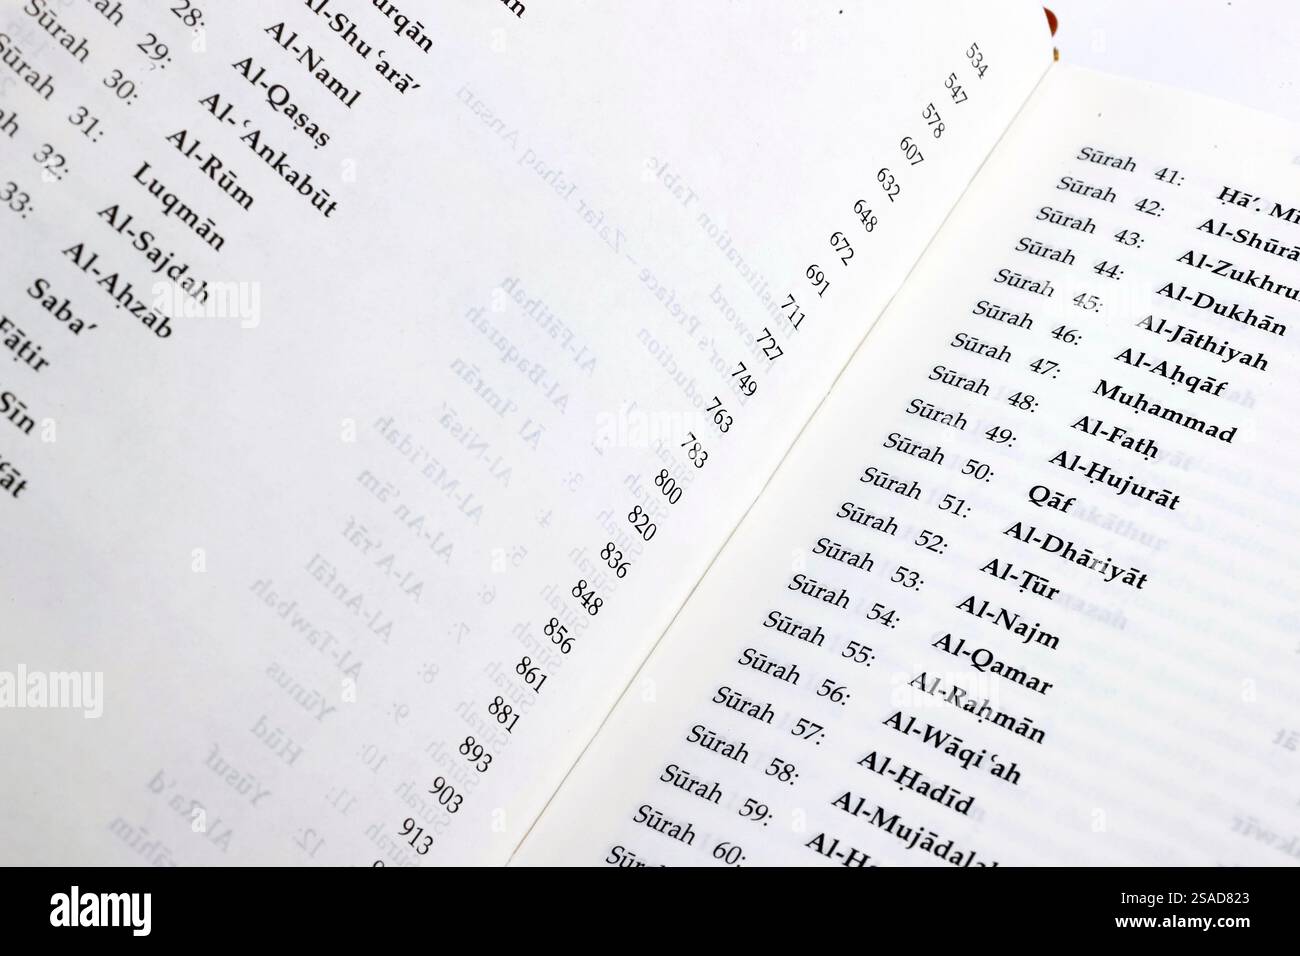 urqān
Al-Shuʿarā’
28: Al-Naml
Sūrah 29: Al-Qaṣaṣ
Sūrah 30: Al-ʿAnkabūt
Sūrah 31: Al-Rūm
32: Luqmān
33: Al-Sajdah
Al-Aḥzāb
Saba’
Fāṭir
Sīn
534
547
578
607
632
648
672
691
711
727
749
763
783
800
820
836
848
856
861
881
893
903
913
Sūrah 41: Ḥā’. Mī
Sūrah 42: Al-Shūrā
Sūrah 43: Al-Zukhru
Sūrah 44: Al-Dukhān
Sūrah 45: Al-Jāthiyah
Sūrah 46: Al-Aḥqāf
Sūrah 47: Muḥammad
Sūrah 48: Al-Fatḥ
Sūrah 49: Al-Ḥujurāt
Sūrah 50: Qāf
Sūrah 51: Al-Dhāriyāt
Sūrah 52: Al-Ṭūr
Sūrah 53: Al-Najm
Sūrah 54: Al-Qamar
Sūrah 55: Al-Raḥmān
Sūrah 56: Al-Wāqiʿah
Sūrah 57: Al-Ḥadīd
Sūrah 58: Al-Mujādalah
Sūrah 59: Al-Ḥa
Sūrah 60:
alamy
Image ID: 2SAD823
www.alamy.com